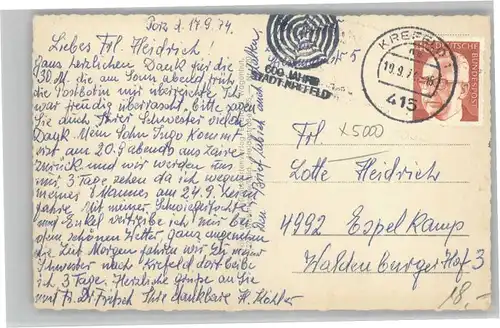 Porz d. 17.9.74.
Liebes Frl. Heidrich!
Ganz herzlichen Dank für die
30.M. die am Sonnabend früh
die Postbotin mir überreichte. Ich
war freudig überrascht. Bitte sagen
Sie auch Ihrer Schwester vielen
Dank. Mein Sohn Ingo kommt
erst am 20.9 abends aus Zaire
zurück und wir werden uns
nur 3 Tage sehen da ich wegen
meines Mannes am 24.9
fahre. Mit meiner Schwiegertochter
und Enkel vertreibe ich mir bei
dem schönen Wetter ganz angenehm
die Zeit. Morgen fahren wir zu meiner
Schwester nach Krefeld dort bleibe
ich 3 Tage. Herzliche Grüße an Sie
und Fr. Dr. Fritsch Ihre dankbare H. Köhler
Den Brief habe ich auch erhalten.
600 JAHRE
STADT KREFELD
KREFELD
19.9.74
415
DEUTSCHE BUNDESPOST
x5000
Lotte Heidrich
4992 Espelkamp
Waldenburger Hof 3
18.-